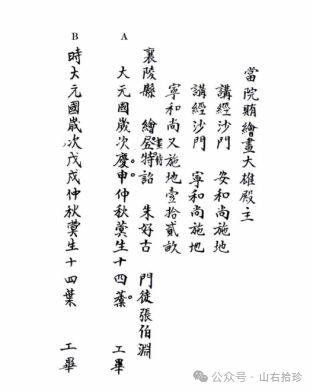 當院賄繪畫大雄殿主
講經沙門　安和尚施地
講經沙門　寧和尚施地
寧和尚又施地壹拾貳畝
襄陵縣　繪特詔　朱好古　門徒張伯淵
A
大元國歲次慶申仲秋蓂生十四　工畢
B
時大元國歲次戊戌仲秋蓂生十四葉　工畢
公众号 · 山右拾珍